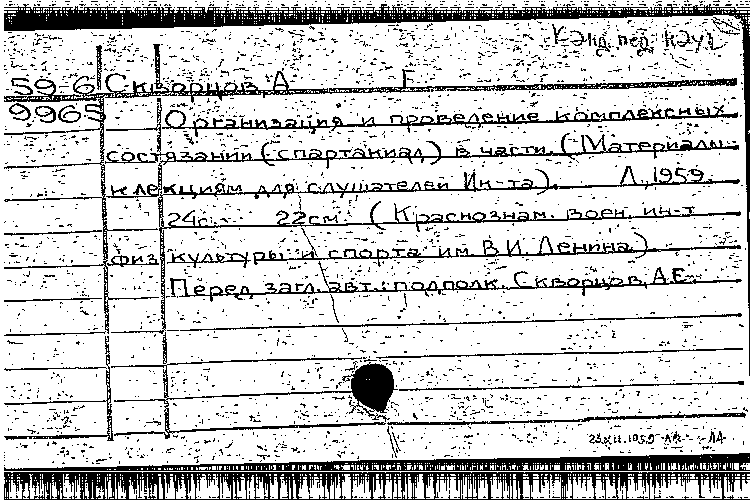 Канд. пед. наук
59-6 Скворцов, А Е
9965 Организация и проведение комплексных
состязании (спартакиад) в части. (Материалы
к лекциям для слушателей Ин-та). Л., 1959.
24с. 22см. (Краснознам. воен. ин-т
физ культуры и спорта им. В.И. Ленина)
Перед загл. авт.: подполк. Скворцов, А.Е.
23.XII.1959